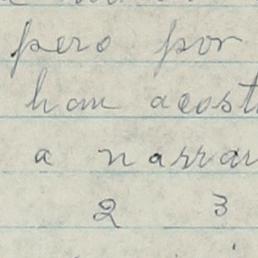 pero por
han acost
a narrar
2 3